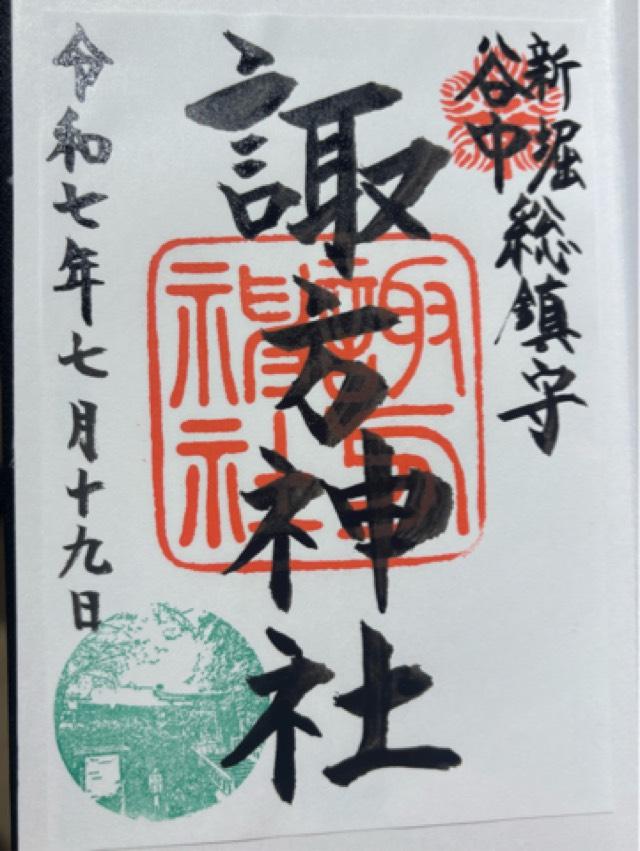 新堀
谷中
総鎮守
諏方神社
諏方神社
令和七年七月十九日